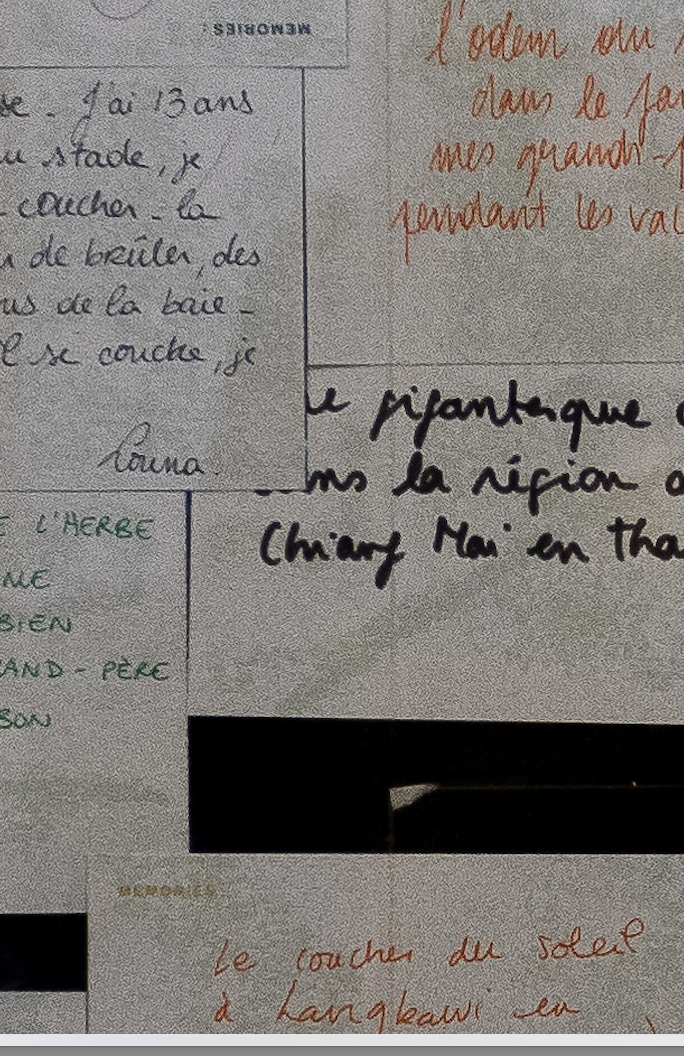 MEMORIES:
se - J'ai 13 ans
au stade, je
coucher - la
de brûler, des
de la baie -
se couche, je
Louna
l'odeur du
dans le
mes grands-
pendant les
gigantesque
dans la région
Chiang Mai en
L'HERBE
BIEN
GRAND-PÈRE
BON
MEMORIES
Le coucher du soleil
à Langkawi en